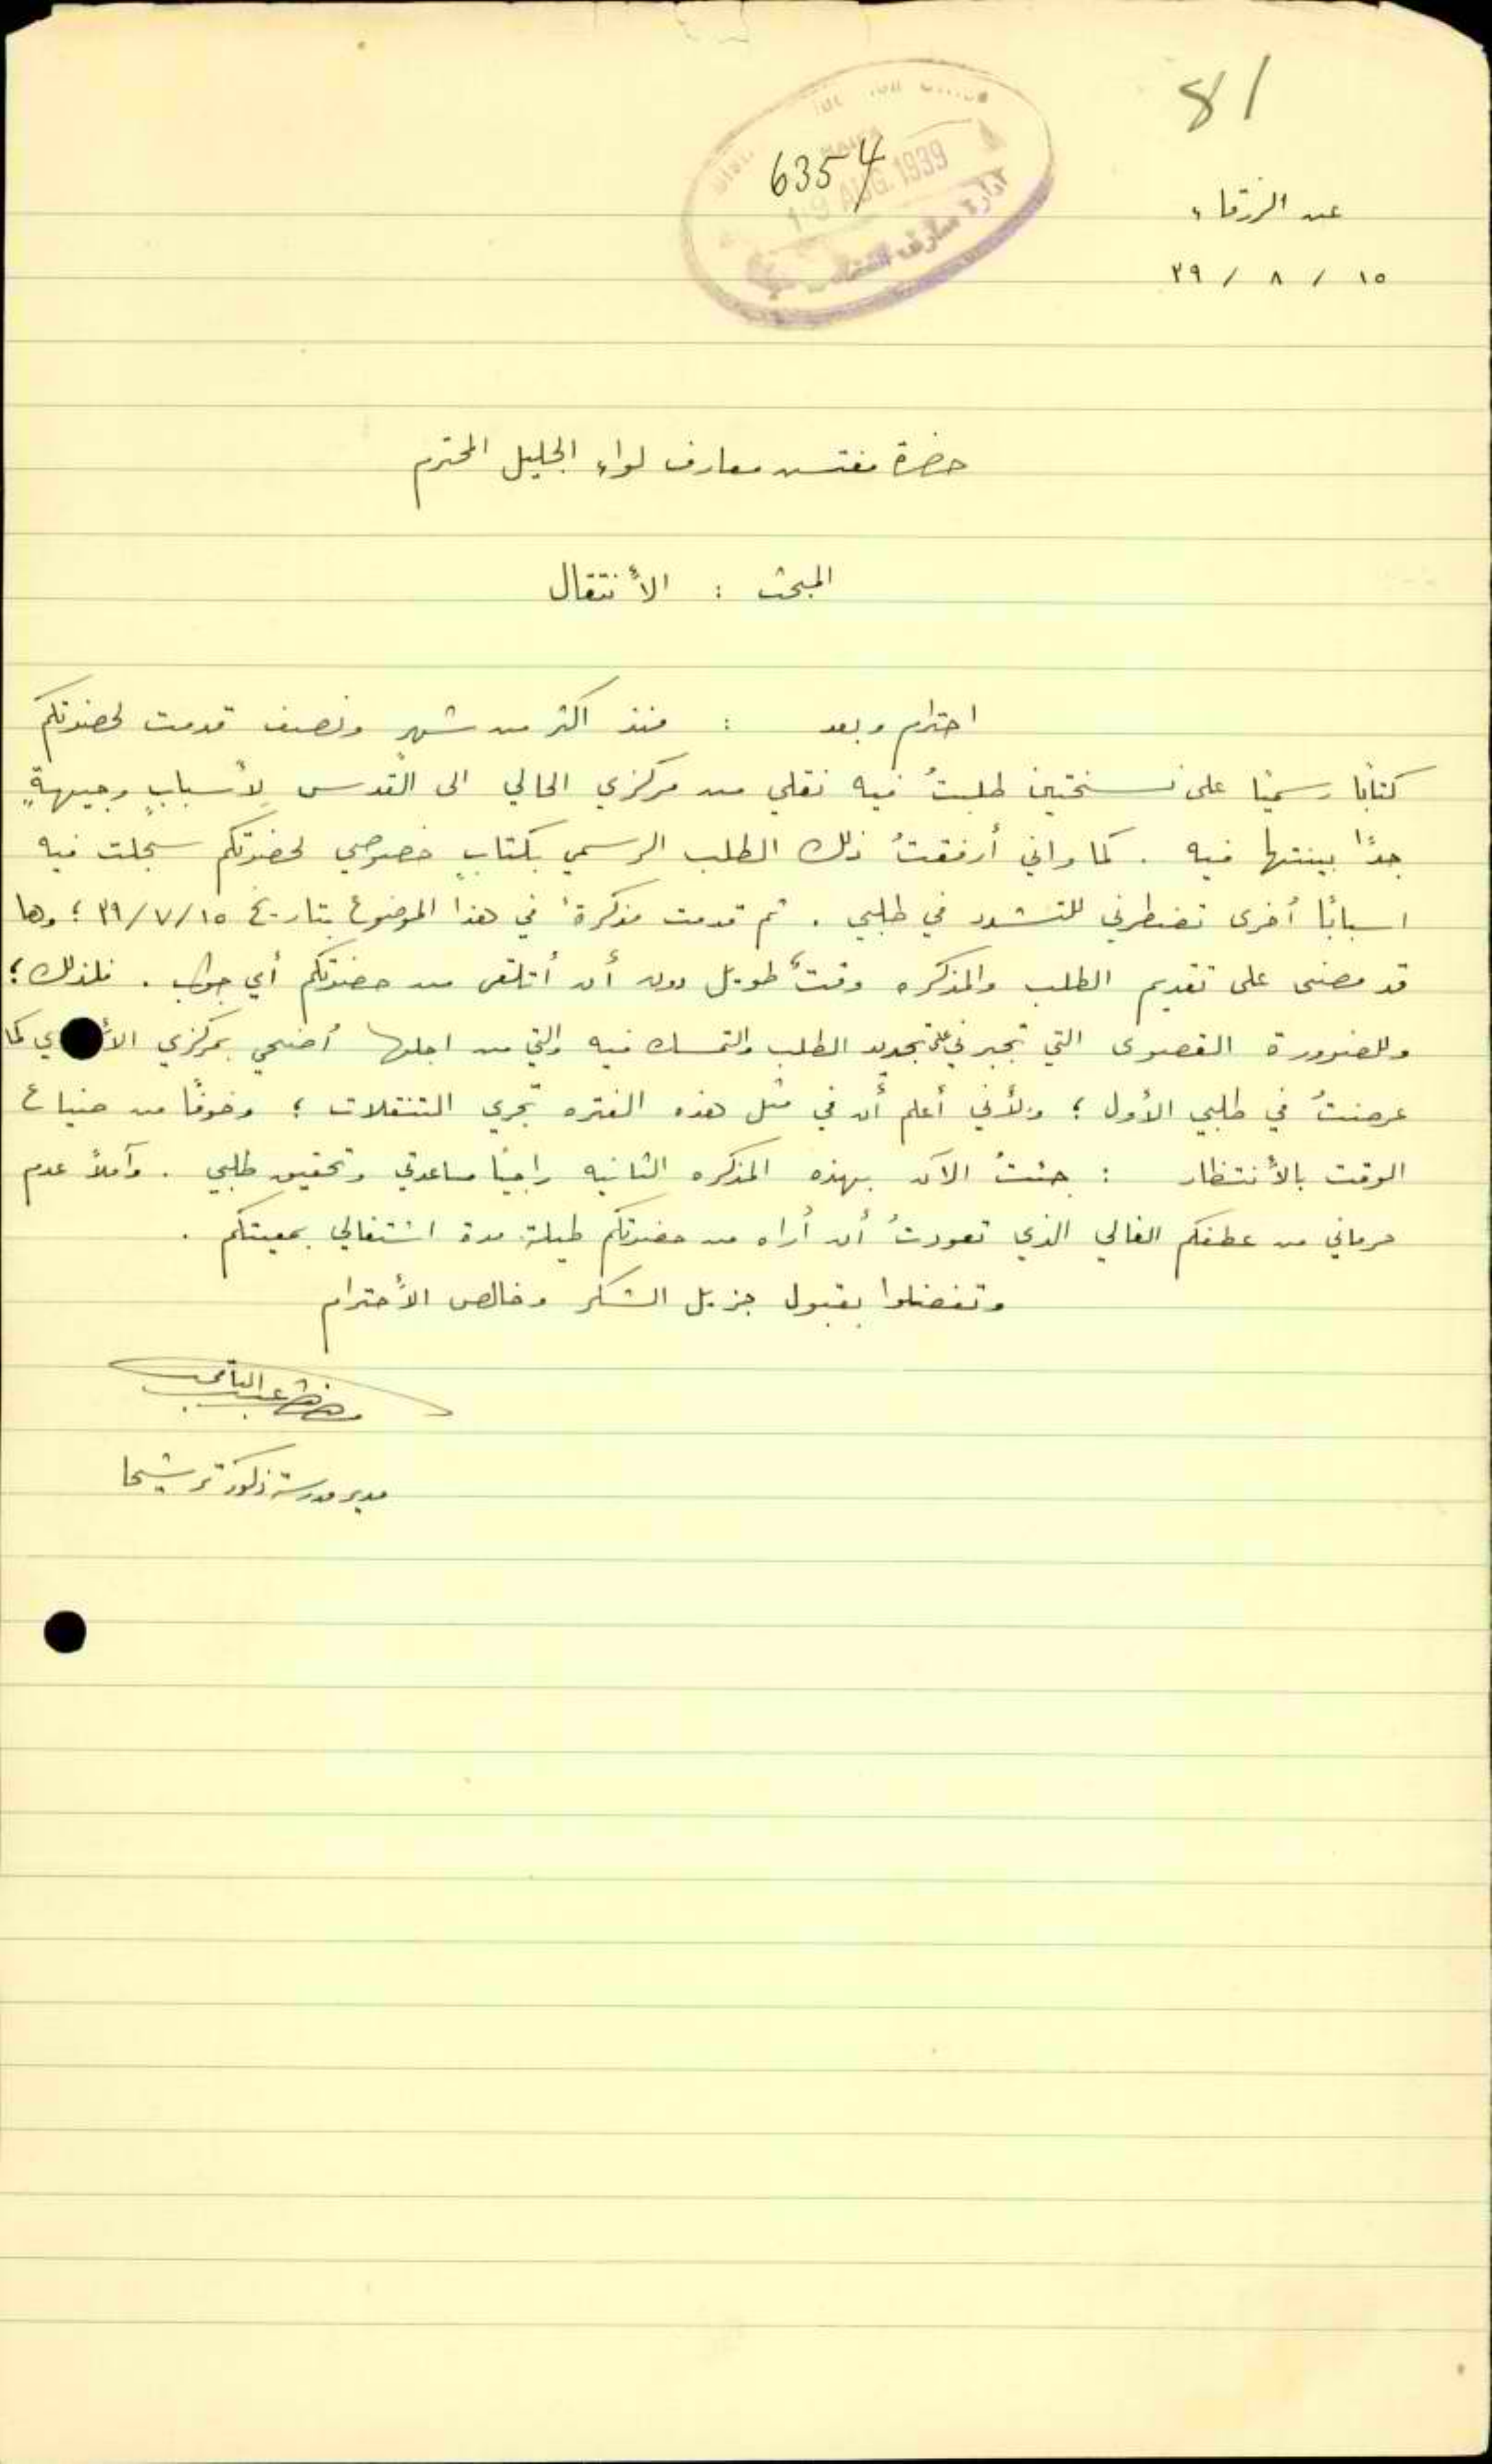 81
6354
HAIFA
19 AUG. 1939
ادارة معارف
عند الزرقاء
١٥ / ٨ / ٣٩
حضرة مفتش معارف لواء الجليل المحترم
المبحث : الأنتقال
احترام وبعد : منذ اكثر من شهرٍ ونصف قدمت لحضرتكم
كتابًا رسميًا على نسختين طلبتُ فيه نقلي من مركزي الحالي الى القدس لأسبابٍ وجيهةٍ
جدًا بينتها فيه . كما واني أرفقتُ ذلك الطلب الرسمي بكتابٍ خصوصي لحضرتكم سجلت فيه
اسبابًا أخرى تضطرني للتشدد في طلبي . ثم قدمت مذكرةً في هذا الموضوع بتاريخ ١٥/٧/٣٩ ؛ وها
قد مضى على تقديم الطلب والمذكره وقتٌ طويل دون أن أتلقى من حضرتكم أي جواب . فلذلك ؛
وللضرورة القصوى التي تجبرني على تجديد الطلب والتمسك فيه والتي من اجلها أضحي بمركزي كما
عرضتُ في طلبي الأول ؛ ولأني أعلم أن في مثل هذه الفتره تجري التنقلات ؛ وخوفًا من ضياع
الوقت بالأنتظار : جئتُ الآن بهذه المذكره الثانيه راجيًا مساعدتي وتحقيق طلبي . وآملاً عدم
حرماني من عطفكم الغالي الذي تعودتُ أن أراه من حضرتكم طيلة مدة اشتغالي بمعيتكم .
وتفضلوا بقبول جزيل الشكر وخالص الأحترام
مدير مدرسة ذكور ترشيحا